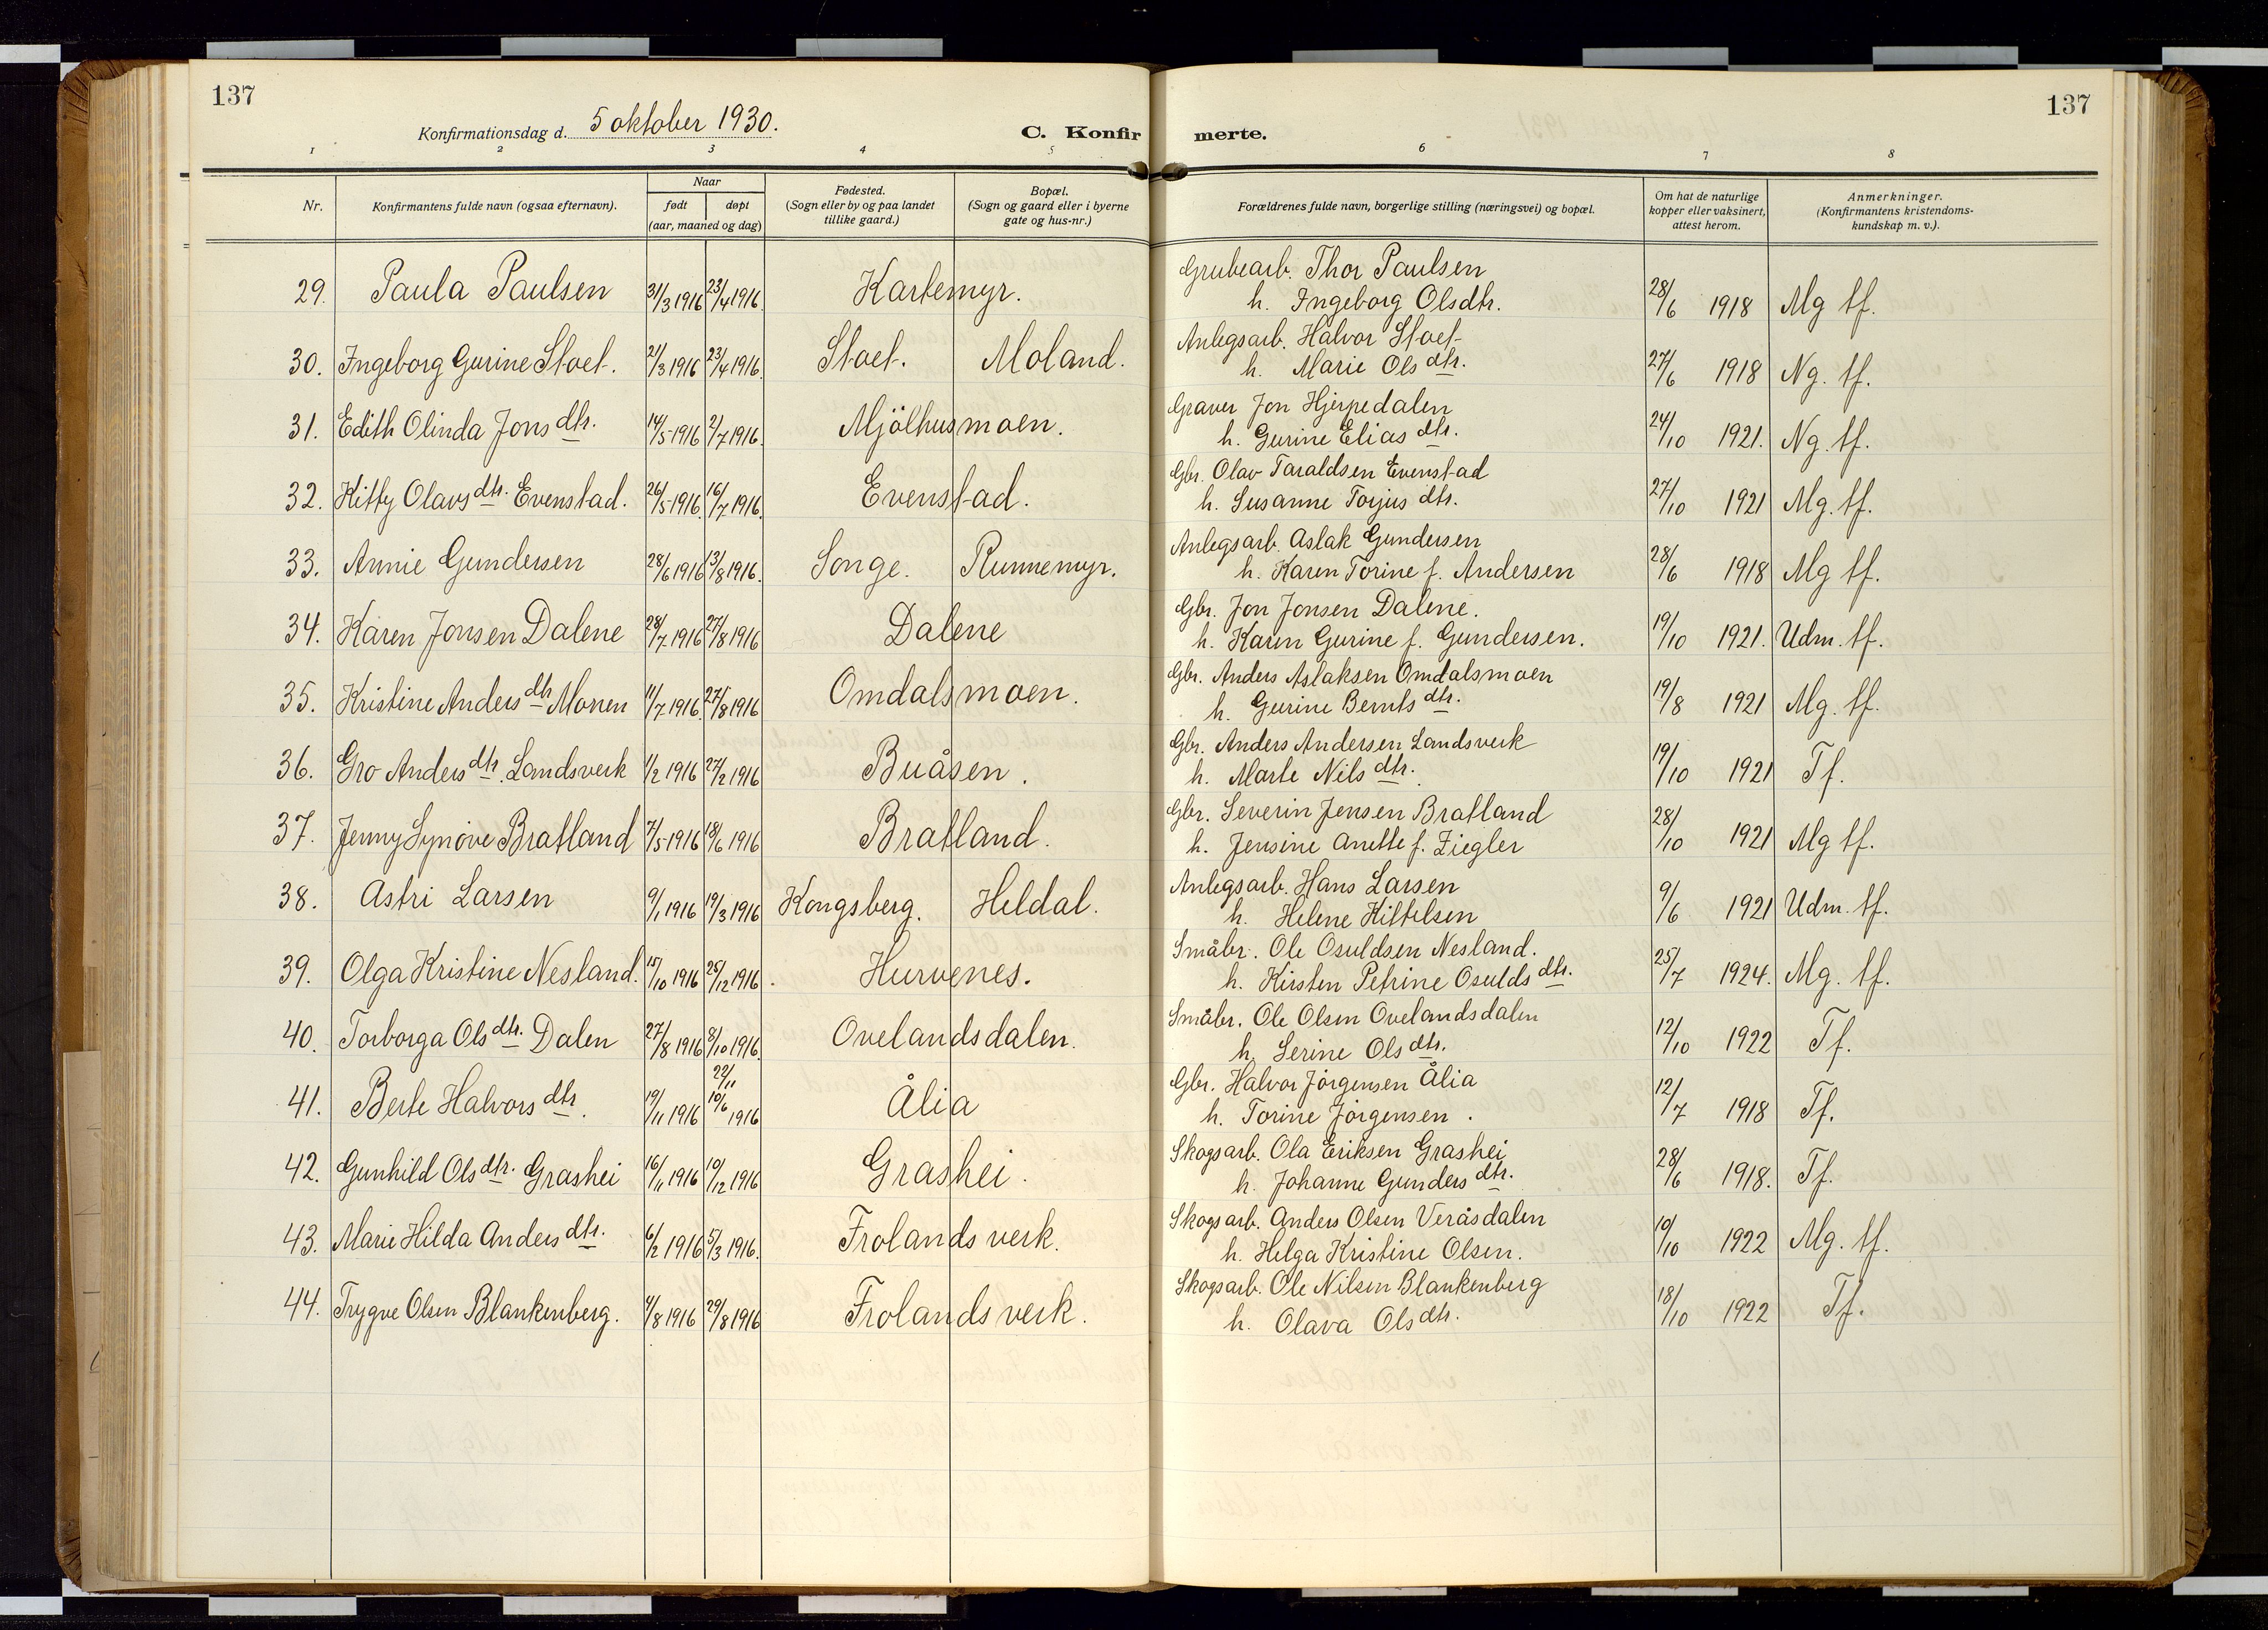 137
137
Konfirmationsdag d. 5 oktober 1930.
C. Konfirmerte.
1 2 3 4 5 6 7 8
Nr.
Konfirmantens fulde navn (ogsaa efternavn).
Naar
født døpt
(aar, maaned og dag)
Fødested.
(Sogn eller by og paa landet
tillike gaard.)
Bopæl.
(Sogn og gaard eller i byerne
gate og hus-nr.)
Forældrenes fulde navn, borgerlige stilling (næringsvei) og bopæl.
Om hat de naturlige
kopper eller vaksinert,
attest herom.
Anmerkninger.
(Konfirmantens kristendoms-
kundskap m. v.).
Grubearb. Thor Paulsen
29. Paula Paulsen 31/3 1916 23/4 1916. Kartemyr. h. Ingeborg Olsdtr. 28/6 1918 Mg tf.
Anlegsarb. Halvor Stoet
30. Ingeborg Gurine Stoet. 21/3 1916 23/4 1916. Stoet. Moland. h. Marie Olsdtr. 27/6 1918 Ng. tf.
Graver Jon Hjerpedalen
31. Edith Olinda Jonsdtr. 14/5 1916 2/7 1916. Mjölhusmoen. h. Gurine Eliasdtr. 24/10 1921. Ng. tf.
Gbr. Olav Taraldsen Evenstad
32. Kitty Olavsdtr. Evenstad. 26/5 1916. 16/7 1916. Evenstad. h. Susanne Torjusdtr. 27/10 1921 Mg. tf.
Anlegsarb. Aslak Gundersen
33. Annie Gundersen 28/6 1916 13/8 1916. Songe. Runnemyr. h. Karen Torine f. Andersen 28/6 1918 Mg tf.
Gbr. Jon Jonsen Dalene.
34. Karen Jonsen Dalene 28/7 1916 27/8 1916 Dalene h. Karen Gurine f. Gundersen. 19/10 1921. Udm. tf.
Gbr. Anders Aslaksen Omdalsmoen
35. Kristine Andersdtr Monen 11/7 1916. 27/8 1916 Omdalsmoen. h. Gurine Berntsdtr. 19/8 1921 Mg. tf.
Gbr. Anders Andersen Landsverk
36. Gro Andersdtr. Landsverk 1/2 1916 27/2 1916 Buåsen. h. Marte Nilsdtr. 19/10 1921 Tf.
Gbr. Severin Jensen Bratland
37. Jenny Synöve Bratland 7/5 1916 18/6 1916 Bratland. h. Jensine Anette f. Ziegler 28/10 1921 Mg tf.
Anlegsarb. Hans Larsen
38. Astri Larsen 9/1 1916 19/3 1916 Kongsberg. Heldal. h. Helene Kittelsen 9/6 1921 Udm. tf.
Småbr. Ole Osuldsen Nesland.
39. Olga Kristine Nesland. 15/10 1916 25/12 1916. Hurvenes. h. Kirsten Petrine Osuldsdtr. 25/7 1924. Mg. tf.
Småbr. Ole Olsen Ovelandsdalen
40. Torborga Olsdtr. Dalen 27/8 1916 8/10 1916. Ovelandsdalen. h. Serine Olsdtr. 12/10 1922 Tf.
22/11
Gbr. Halvor Jörgensen Ålia
41. Berte Halvorsdtr. 19/11 1916 10/6 1916 Ålia h. Torine Jörgensen. 12/7 1918 Tf.
Skogsarb. Ola Eriksen Grashei
42. Gunhild Olsdtr. Grashei 16/11 1916 10/12 1916 Grashei. h. Johanne Gundersdtr. 28/6 1918. Tf.
Skogsarb. Anders Olsen Veråsdalen
43. Marie Hilda Andersdtr. 6/2 1916 5/3 1916. Frolands verk. h. Helga Kristine Olsen. 10/10 1922 Mg. tf.
Skogsarb. Ole Nilsen Blankenberg
44. Trygve Olsen Blankenberg. 4/8 1916 29/8 1916 Frolands verk. h. Olava Olsdtr. 18/10 1922 Tf.